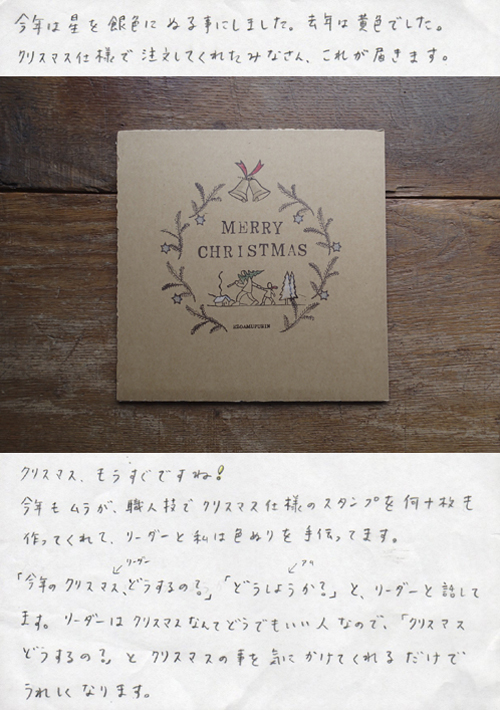 今年は星を銀色にぬる事にしました。去年は黄色でした。
クリスマス仕様で注文してくれたみなさん、これが届きます。
MERRY
CHRISTMAS
クリスマス、もうすぐですね!
今年もムラが、職人技でクリスマス仕様のスタンプを何十枚も
作ってくれて、リーダーと私は色ぬりを手伝ってます。
リーダー
「今年のクリスマス、どうするの?」「どうしようか?」と、リーダーと話して
ます。リーダーはクリスマスなんてどうでもいい人なので、「クリスマス
どうするの?」とクリスマスの事を気にかけてくれるだけで
うれしくなります。